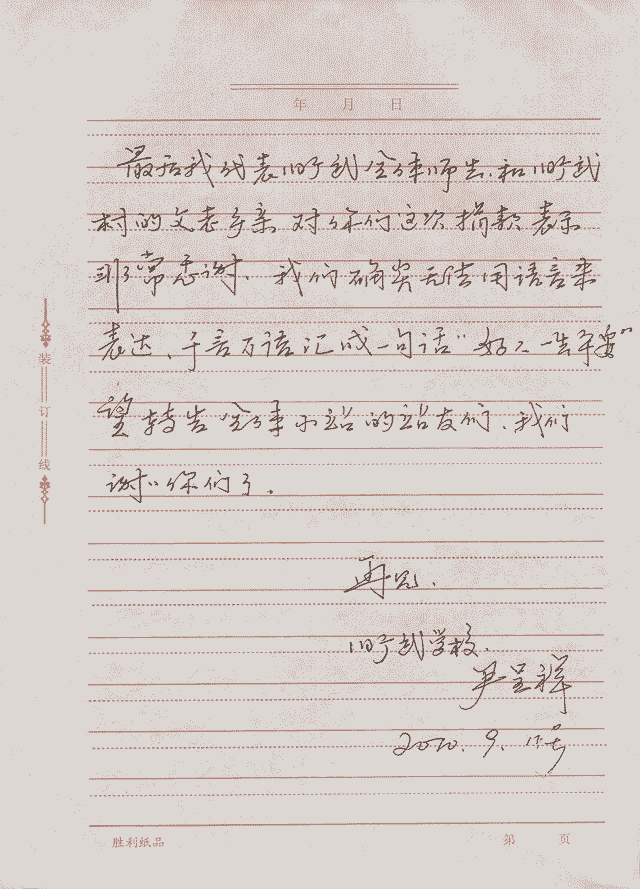 年 月 日
最后我代表旧武全体师生、和旧武
村的父老乡亲 对你们这次捐款表示
非常感谢、我们确实无法用语言来
表达、千言万语汇成一句话"好人一生平安"
望转告全体小站的站友们、我们
谢谢你们了.
再见.
学校.
尹呈祥
2010. 9.
装
订
线
胜利纸品
第 页